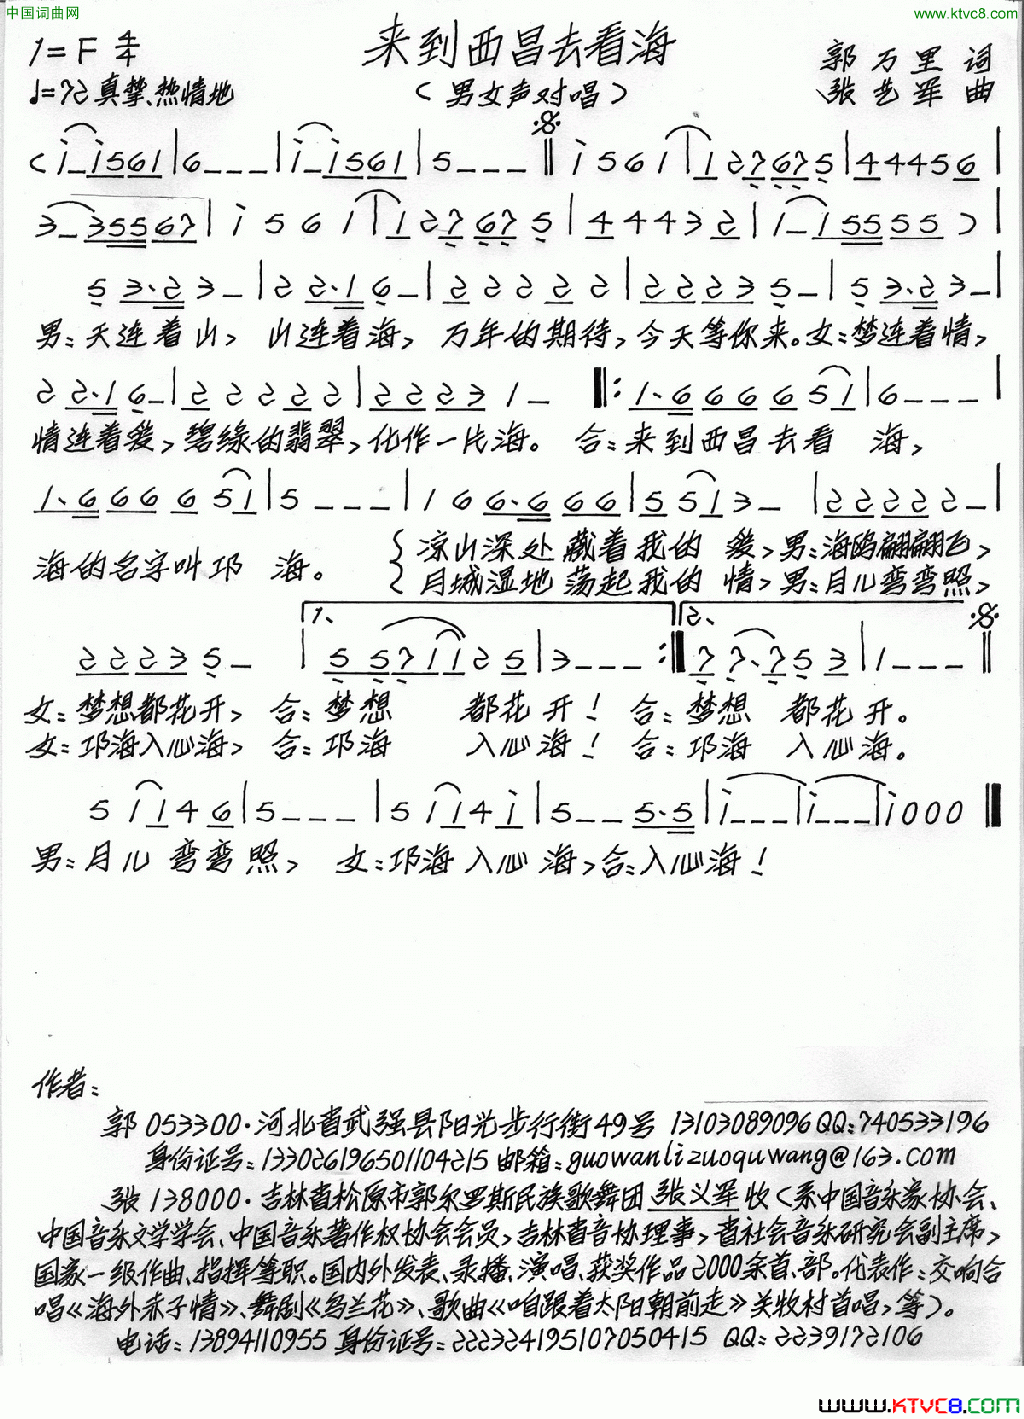 中国词曲网
www.ktvc8.com
来到西昌去看海
1=F 4/4
郭万里 词
♩=72 真挚、热情地
(男女声对唱)
张艺军 曲
(i_i561|6___|i_i561|5___‖i561|127675|44456|
3_35567|i561|127675|44432|1_15555)|
53·23_|22·16_|22222|22235_|53·23_|
男:天连着山, 山连着海, 万年的期待,今天等你来。女:梦连着情,
22·16_|22222|22231_‖:1·666651|6___|
情连着爱,碧绿的翡翠,化作一片海。 合:来到西昌去看 海,
1·666651|5___|166·666|5513_|22222_|
海的名字叫邛 海。
凉山深处藏着我的 爱,男:海鸥翩翩飞,
月城湿地荡起我的 情,男:月儿弯弯照,
22235_|1.5571125|3___:‖2.77·753|1___‖
女:梦想都花开, 合:梦想 都花开! 合:梦想 都花开。
女:邛海入心海, 合:邛海 入心海! 合:邛海 入心海。
51146|5___|5114i|5__5·5|i___|i___|i000‖
男:月儿弯弯照, 女:邛海入心海,合:入心海!
作者:
郭 053300·河北省武强县阳光步行街49号 13103089096 QQ:740533196
身份证号:133026196501104215 邮箱:guowanlizuoquwang@163.com
张 138000·吉林省松原市郭尔罗斯民族歌舞团 张义军 收(系中国音乐家协会、
中国音乐文学学会、中国音乐著作权协会会员,吉林省音协理事,省社会音乐研究会副主席,
国家一级作曲、指挥等职。国内外发表、录播、演唱、获奖作品2000余首、部。代表作:交响合
唱《海外赤子情》、舞剧《乌兰花》、歌曲《咱跟着太阳朝前走》关牧村首唱,等)。
电话:13894110955 身份证号:222324195107050415 QQ:2239172106
www.KTVC8.com